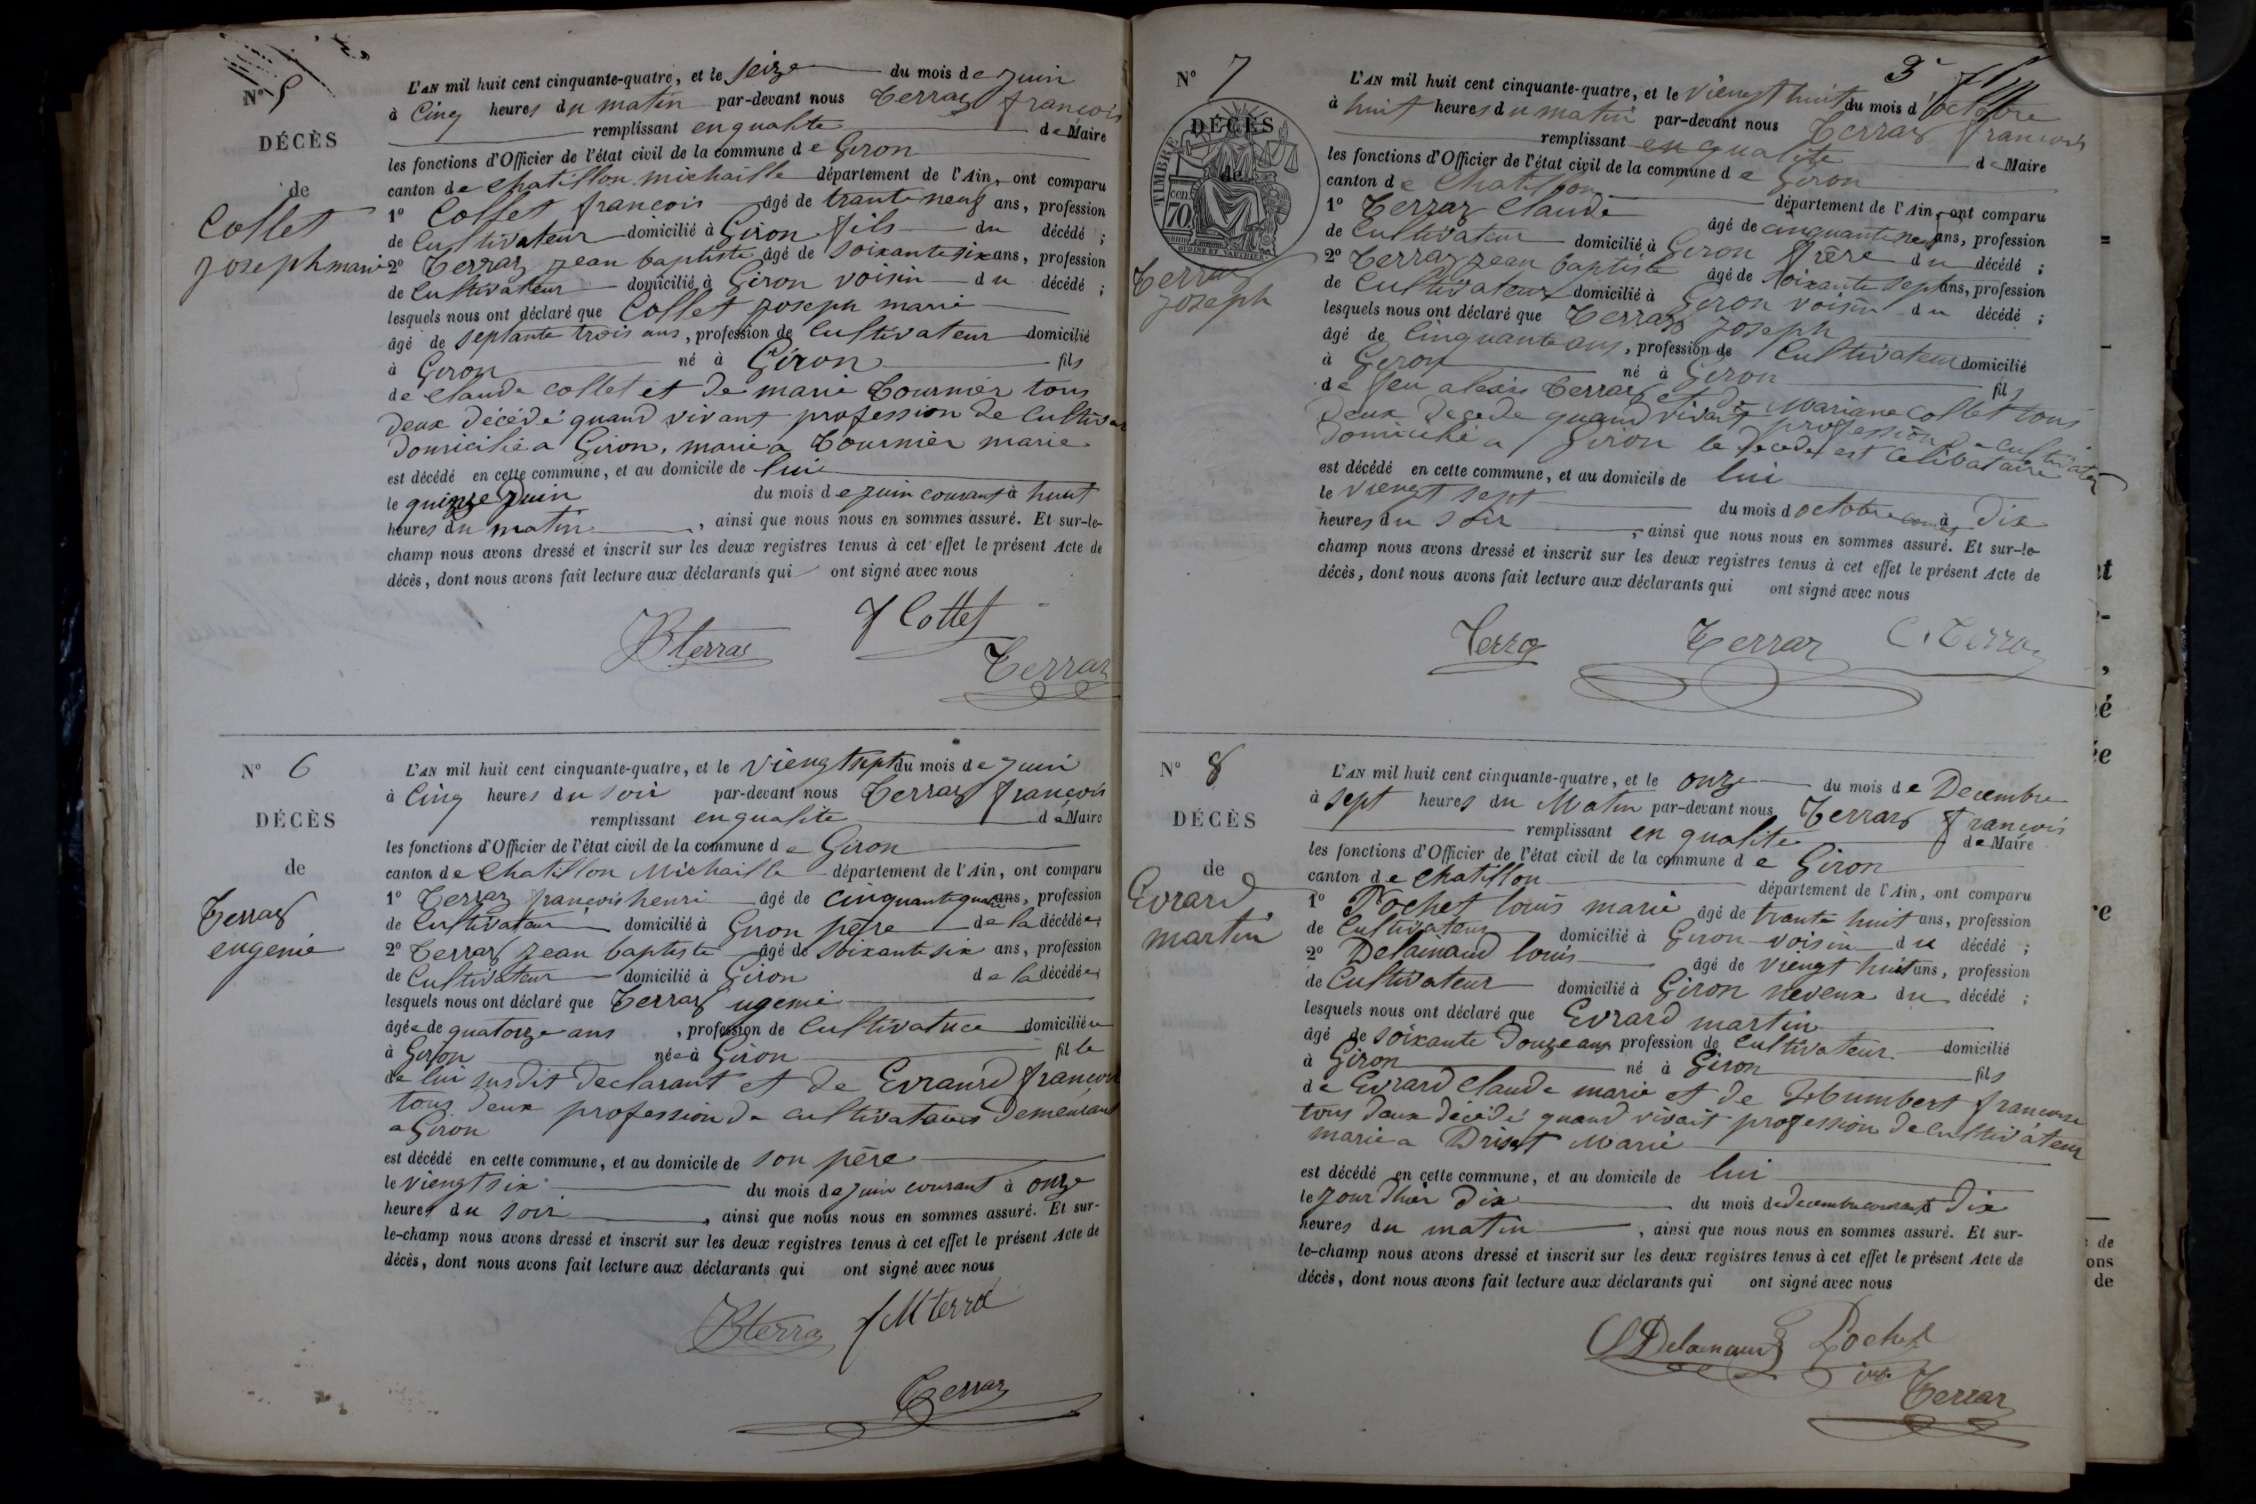 N° 5
DÉCÈS
de
Collet
joseph marie
L'AN mil huit cent cinquante-quatre, et le seize du mois de juin
à cinq heures du matin par-devant nous Terraz françois
remplissant en qualite de Maire
les fonctions d'Officier de l'état civil de la commune de Giron
canton de Chatillon michaille département de l'Ain, ont comparu
1° Collet francois âgé de trante neuf ans, profession
de Cultivateur domicilié à Giron fils du décédé ;
2° Terraz jean baptiste âgé de soixante six ans, profession
de Cultivateur domicilié à Giron voisin du décédé ;
lesquels nous ont déclaré que Collet joseph marie
âgé de septante trois ans, profession de Cultivateur domicilié
à Giron né à Giron fils
de Claude Collet et de marie Tournier tous
deux décédé quand vivant profession de Cultivat
domicilié a Giron, marie a Tournier marie
est décédé en cette commune, et au domicile de lui
le quinze Juin du mois de juin courant à huit
heures du matin , ainsi que nous nous en sommes assuré. Et sur-le-
champ nous avons dressé et inscrit sur les deux registres tenus à cet effet le présent Acte de
décès, dont nous avons fait lecture aux déclarants qui ont signé avec nous
JB terraz f Collet
Terraz
N° 6
DÉCÈS
de
Terraz
eugenie
L'AN mil huit cent cinquante-quatre, et le viengt sept du mois de juin
à Cinq heures du soir par-devant nous Terraz françois
remplissant en qualite de Maire
les fonctions d'Officier de l'état civil de la commune de Giron
canton de Chatillon Michaille département de l'Ain, ont comparu
1° Terraz francois henri âgé de cinquante quatre ans, profession
de Cultivateur domicilié à Giron père de la décédée
2° Terraz jean baptiste âgé de soixante six ans, profession
de Cultivateur domicilié à Giron de la décédée
lesquels nous ont déclaré que Terraz ugenie
âgée de quatorze ans , profession de Cultivatrice domiciliée
à Giron née à Giron fille
de lui susdit declarant et de Evrard françoise
tous deux profession de cultivateurs demeurant
a Giron
est décédé en cette commune, et au domicile de son père
le viengt six du mois de juin courant à onze
heures du soir , ainsi que nous nous en sommes assuré. Et sur-
le-champ nous avons dressé et inscrit sur les deux registres tenus à cet effet le présent Acte de
décès, dont nous avons fait lecture aux déclarants qui ont signé avec nous
JB terraz
Terraz
3
N° 7
DÉCÈS
TIMBRE
cen 70
Terraz
joseph
L'AN mil huit cent cinquante-quatre, et le viengt huit du mois d'octobre
à huit heures du matin par-devant nous Terraz francois
remplissant en qualite de Maire
les fonctions d'Officier de l'état civil de la commune de Giron
canton de Chatillon département de l'Ain, ont comparu
1° Terraz Claude âgé de cinquante neuf ans, profession
de Cultivateur domicilié à Giron frère du décédé ;
2° Terraz jean baptiste âgé de soixante sept ans, profession
de Cultivateur domicilié à Giron voisin du décédé ;
lesquels nous ont déclaré que Terraz joseph
âgé de Cinquante ans, profession de Cultivateur domicilié
à Giron né à Giron fils
de feu alexis Terraz et de Mariane Collet tous
deux decede quand vivait profession de cultivateur
domicilié a Giron le decede est Celibataire
est décédé en cette commune, et au domicile de lui
le viengt sept du mois d octobre à dix
heures du soir , ainsi que nous nous en sommes assuré. Et sur-le-
champ nous avons dressé et inscrit sur les deux registres tenus à cet effet le présent Acte de
décès, dont nous avons fait lecture aux déclarants qui ont signé avec nous
Terraz Terraz C. Terraz
N° 8
DÉCÈS
de
Evrard
martin
L'AN mil huit cent cinquante-quatre, et le onze du mois de Decembre
à sept heures du Matin par-devant nous Terraz françois
remplissant en qualite de Maire
les fonctions d'Officier de l'état civil de la commune de Giron
canton de Chatillon département de l'Ain, ont comparu
1° Pochet louis marie âgé de trante huit ans, profession
de Cultivateur domicilié à Giron voisin du décédé ;
2° Delamaud louis âgé de viengt huit ans, profession
de Cultivateur domicilié à Giron neveux du décédé ;
lesquels nous ont déclaré que Evrard martin
âgé de soixante douze ans profession de Cultivateur domicilié
à Giron né à Giron fils
de Evrard Claude marie et de humbert francoise
tous deux decédé quand vivait profession de Cultivateur
marie a Marie
est décédé en cette commune, et au domicile de lui
le jour d'hier dix du mois de decembre courant à dix
heures du matin , ainsi que nous nous en sommes assuré. Et sur-
le-champ nous avons dressé et inscrit sur les deux registres tenus à cet effet le présent Acte de
décès, dont nous avons fait lecture aux déclarants qui ont signé avec nous
Delamaud Pochet
Terraz